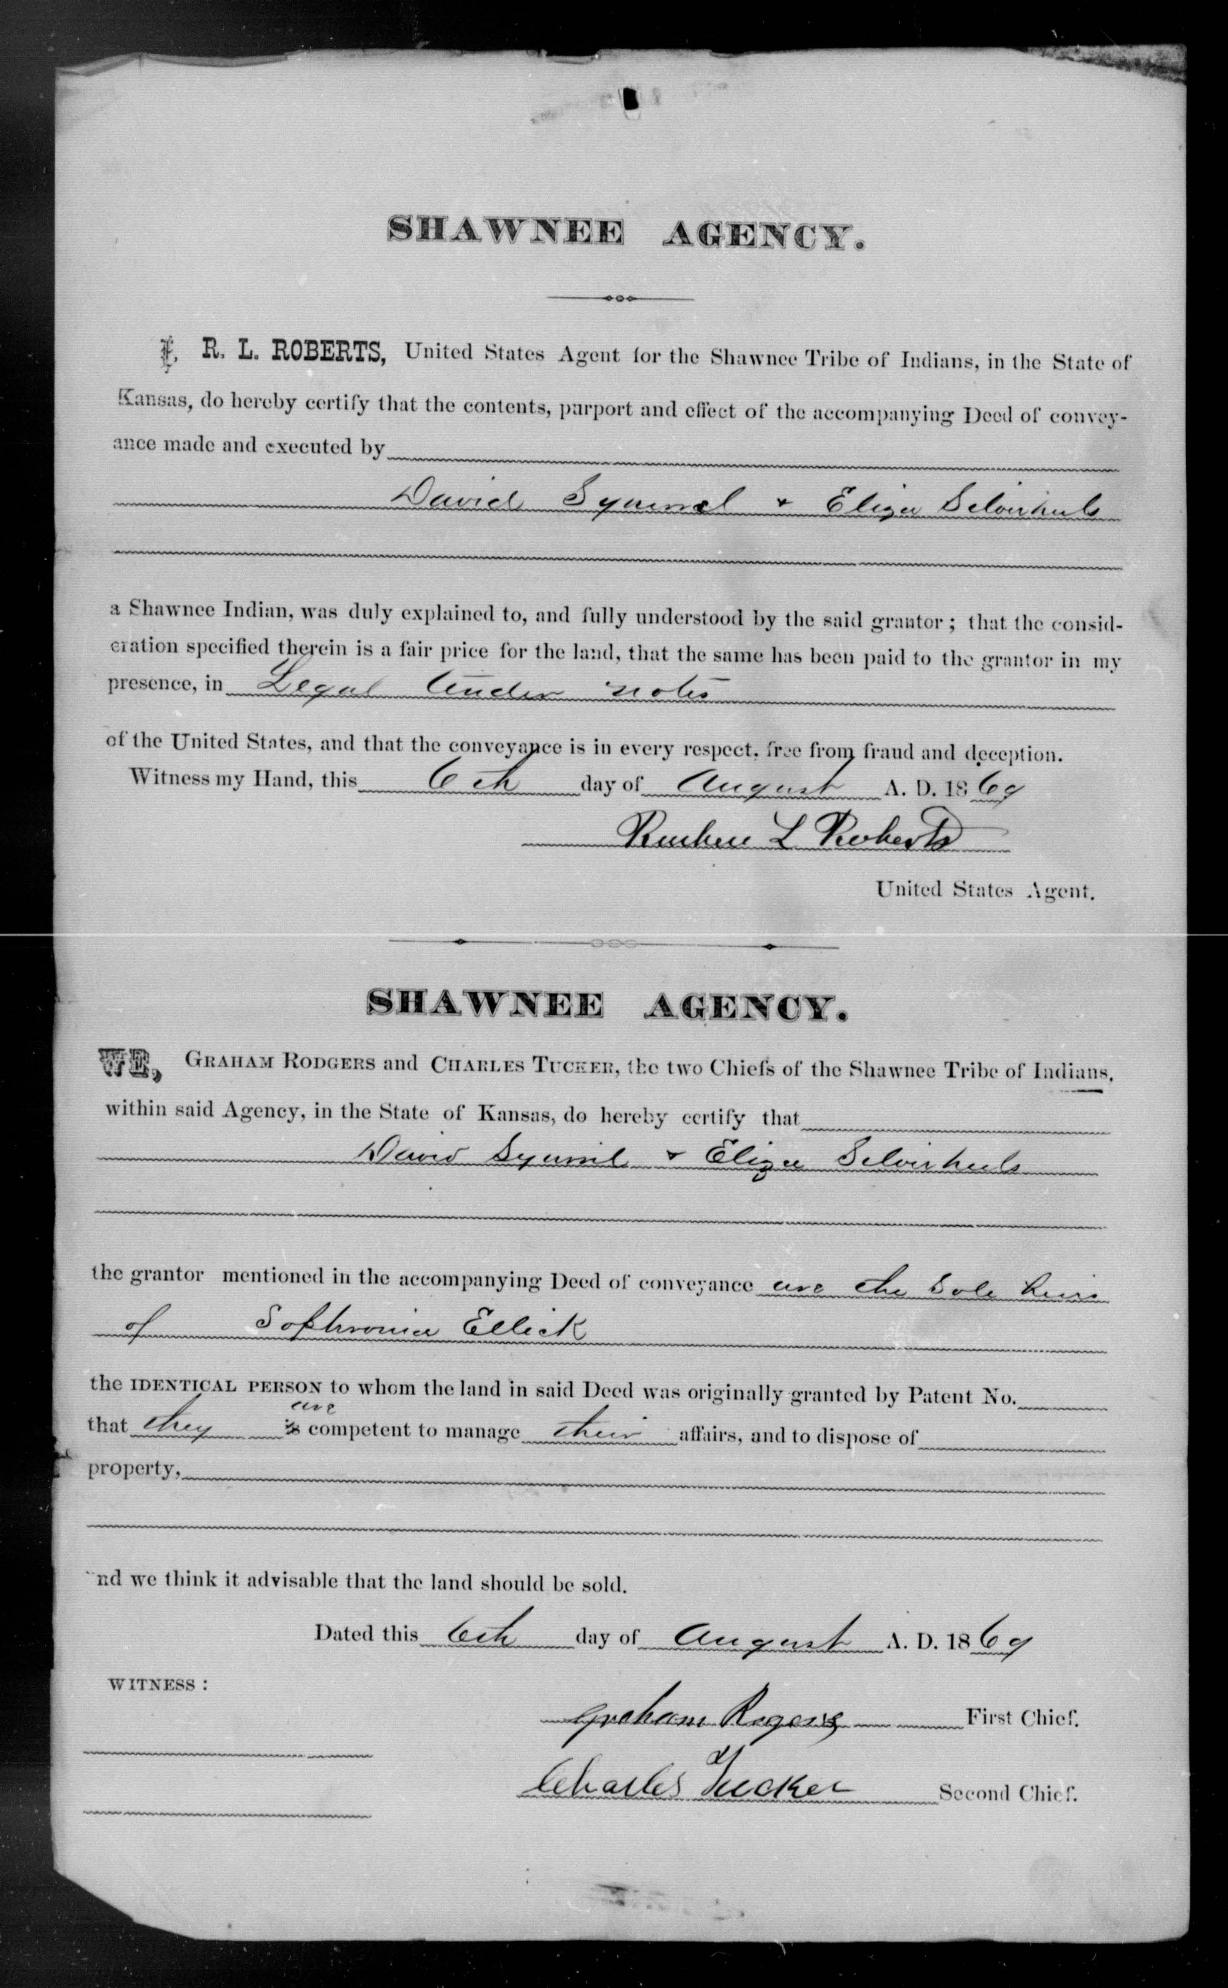 SHAWNEE AGENCY.
I, R. L. ROBERTS, United States Agent for the Shawnee Tribe of Indians, in the State of
Kansas, do hereby certify that the contents, purport and effect of the accompanying Deed of convey-
ance made and executed by
David Squirrel & Eliza Silverheels
a Shawnee Indian, was duly explained to, and fully understood by the said grantor; that the consid-
eration specified therein is a fair price for the land, that the same has been paid to the grantor in my
presence, in Legal Tender notes
of the United States, and that the conveyance is in every respect, free from fraud and deception.
Witness my Hand, this 6th day of August A. D. 1869
Reuben L Roberts
United States Agent.
SHAWNEE AGENCY.
WE, GRAHAM RODGERS and CHARLES TUCKER, the two Chiefs of the Shawnee Tribe of Indians,
within said Agency, in the State of Kansas, do hereby certify that
David Squirrel & Eliza Silverheels
the grantor mentioned in the accompanying Deed of conveyance are the Sole heirs
of Sophronia Ellick
the IDENTICAL PERSON to whom the land in said Deed was originally granted by Patent No.
are
that they is competent to manage their affairs, and to dispose of
property,
nd we think it advisable that the land should be sold.
Dated this 6th day of August A. D. 1869
WITNESS:
Graham Rogers First Chief.
Charles Tucker Second Chief.